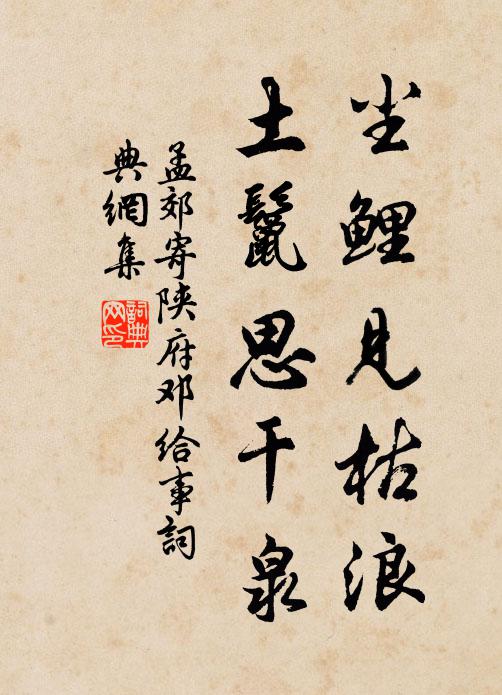 尘鲤见枯浪
土鬣思干泉
孟郊寄陕府邓给事詞
典網集
詞典
网印